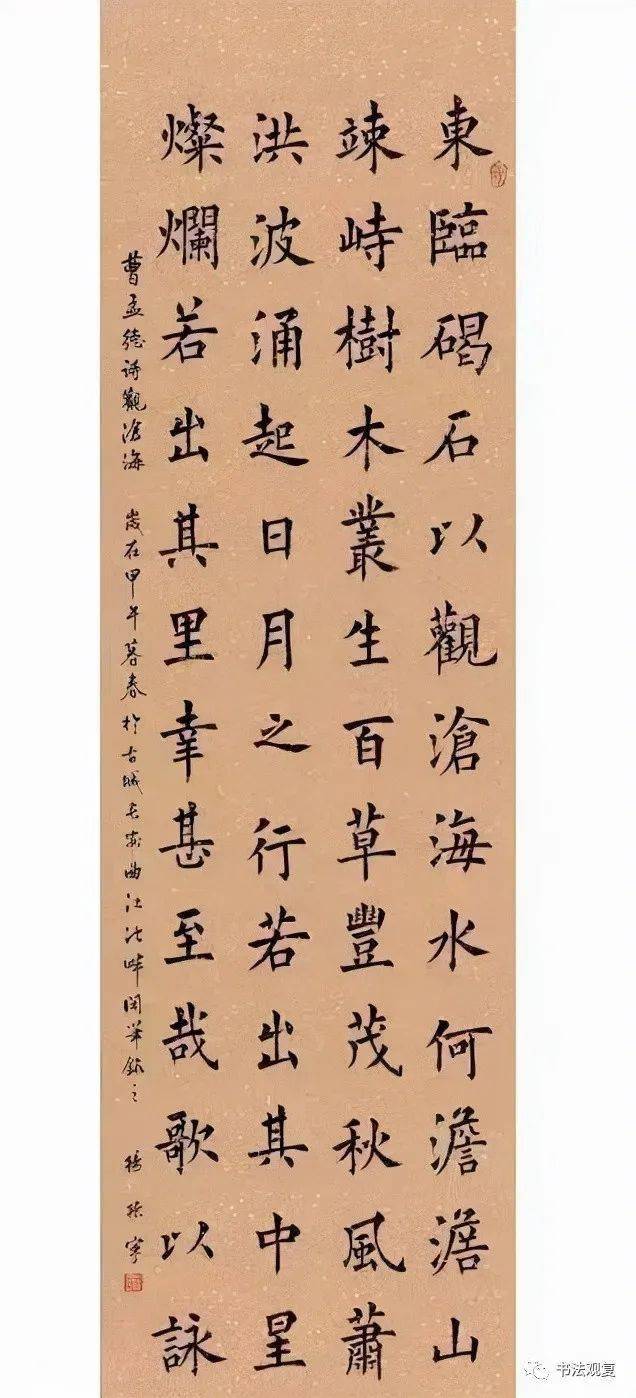 東臨碣石以觀滄海水何澹澹山
竦峙樹木叢生百草豐茂秋風蕭
洪波涌起日月之行若出其中星
燦爛若出其里幸甚至哉歌以詠
曹孟德詩觀滄海 歲在甲午暮春於古城長安曲江池畔閑筆錄之
书法观复